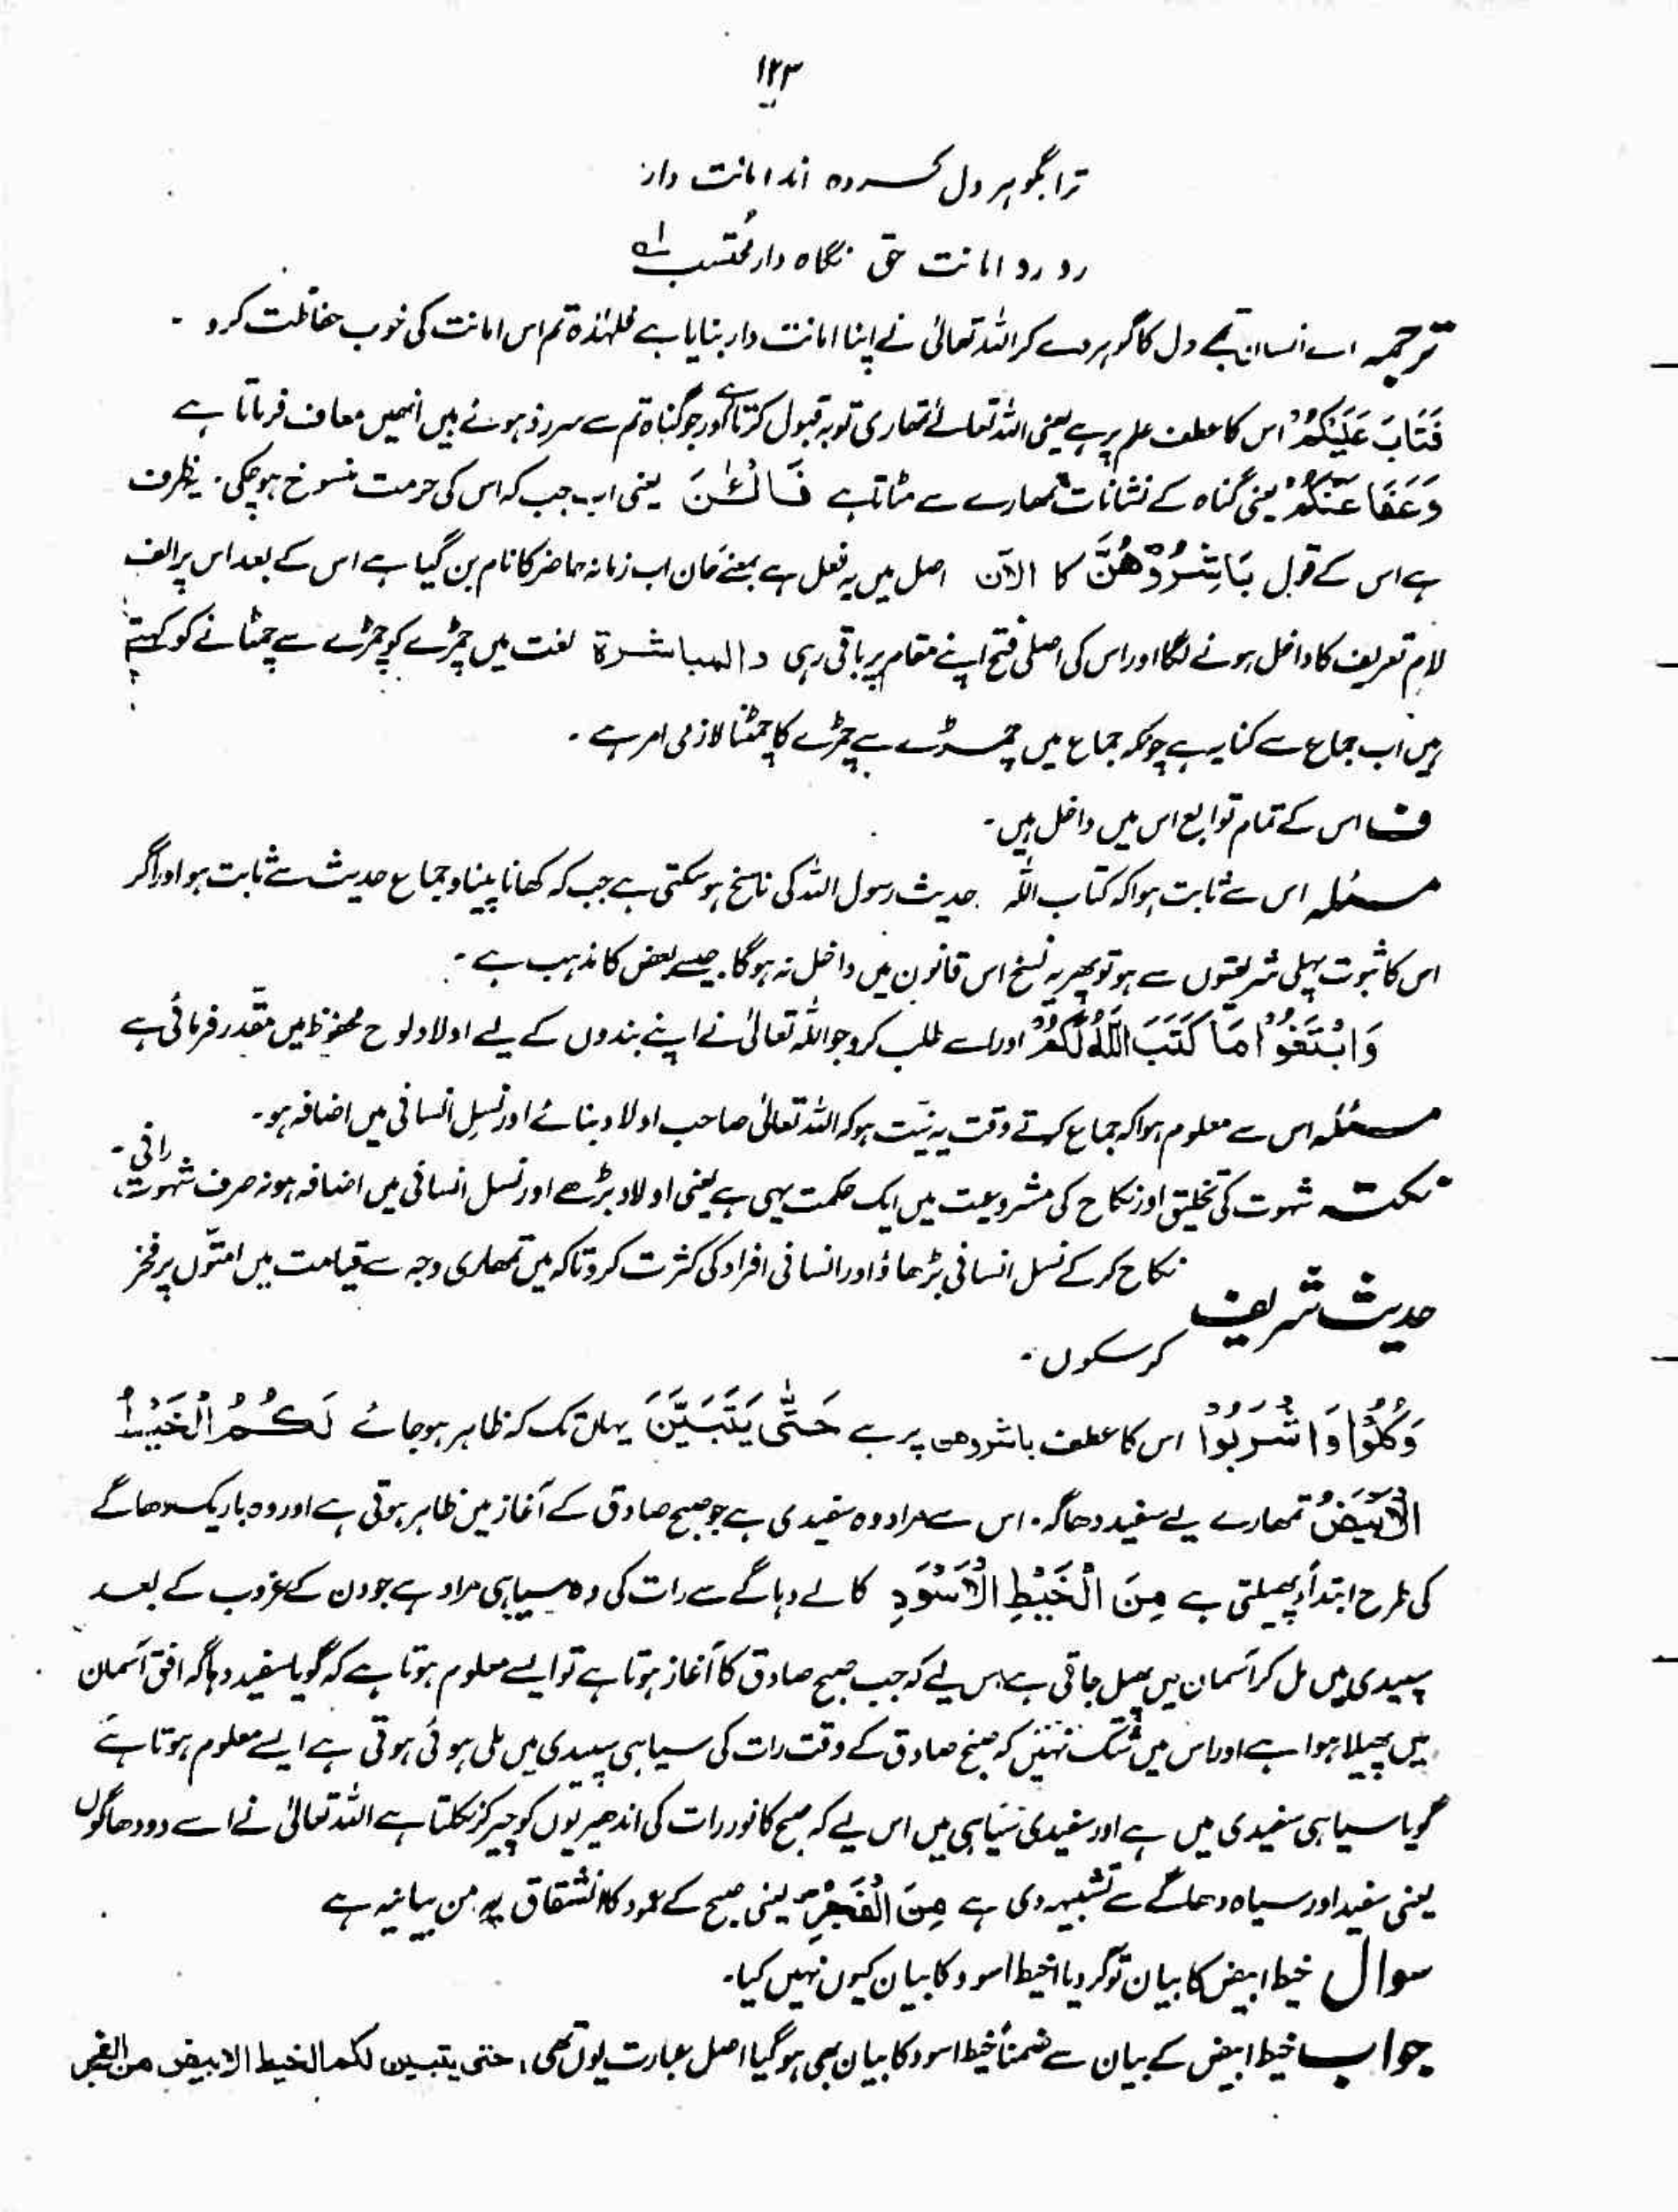 ۱۲۳
ترا بگوہر دل کردہ اند امانت دار
رو رو امانت حق نگاہ دار مُحتسب
ترجمہ اے انسان تجھے دل کا گوہر دے کر اللہ تعالیٰ نے اپنا امانت دار بنایا ہے فلہٰذہ تم اس امانت کی خوب حفاظت کرو ۔
فَتَابَ عَلَيْكُمْ اس کا عطف علم پر ہے یعنی اللہ تعالےٰ تمھاری توبہ قبول کرتا ہے اور جو گناہ تم سے سرزد ہوئے ہیں انھیں معاف فرماتا ہے
وَعَفَا عَنْكُمْ یعنی گناہ کے نشانات تمھارے سے مٹاتا ہے فَالْئٰنَ یعنی اب جب کہ اس کی حرمت منسوخ ہو چکی ۔ یہ ظرف
ہے اس کے قول بَاشِرُوْهُنَّ کا الآن اصل میں یہ فعل ہے بمعنے حَان اب زمانہ حاضر کا نام بن گیا ہے اس کے بعد اس پر الف
لام تعریف کا داخل ہونے لگا اور اس کی اصلی فتح اپنے مقام پر باقی رہی والمباشرة لغت میں چمڑے کو چمڑے سے چمٹانے کو کہتے
ہیں اب جماع سے کنایہ ہے چونکہ جماع میں چمڑے سے چمڑے کا چمٹنا لازمی امر ہے ۔
ف اس کے تمام توابع اس میں داخل ہیں ۔
مسئلہ اس سے ثابت ہوا کہ کتاب اللہ حدیث رسول اللہ کی ناسخ ہو سکتی ہے جب کہ کھانا پینا و جماع حدیث سے ثابت ہو اور اگر
اس کا ثبوت پہلی شریعتوں سے ہو تو پھر یہ نسخ اس قانون میں داخل نہ ہو گا ۔ جیسے بعض کا مذہب ہے ۔
وَابْتَغُوْا مَا كَتَبَ اللّٰهُ لَكُمْ اور اسے طلب کرو جو اللہ تعالیٰ نے اپنے بندوں کے لیے اولاد لوح محفوظ میں مقدر فرمائی ہے
مسئلہ اس سے معلوم ہوا کہ جماع کرتے وقت یہ نیت ہو کہ اللہ تعالیٰ صاحب اولاد بنائے اور نسل انسانی میں اضافہ ہو ۔
نکتہ شہوت کی تخلیق اور نکاح کی مشروعیت میں ایک حکمت یہی ہے یعنی اولاد بڑھے اور نسل انسانی میں اضافہ ہو نہ صرف شہوت رانی ۔
حدیث شریف نکاح کر کے نسل انسانی بڑھاؤ اور انسانی افراد کی کثرت کرو تاکہ میں تمھاری وجہ سے قیامت میں امتوں پر فخر
کر سکوں ۔
وَكُلُوْا وَاشْرَبُوْا اس کا عطف باشروھن پر ہے حَتّٰى يَتَبَيَّنَ یہاں تک کہ ظاہر ہو جائے لَكُمُ الْخَيْطُ
الْاَبْيَضُ تمھارے لیے سفید دھاگہ ۔ اس سے مراد وہ سفیدی ہے جو صبح صادق کے آغاز میں ظاہر ہوتی ہے اور وہ باریک دھاگے
کی طرح ابتداً پھیلتی ہے مِنَ الْخَيْطِ الْاَسْوَدِ کالے دہاگے سے رات کی وہ سیاہی مراد ہے جو دن کے غروب کے بعد
سپیدی میں مل کر آسمان میں پھیل جاتی ہے اس لیے کہ جب صبح صادق کا آغاز ہوتا ہے تو ایسے معلوم ہوتا ہے کہ گویا سفید دہاگہ افق آسمان
میں پھیلا ہوا ہے اور اس میں شک نہیں کہ صبح صادق کے وقت رات کی سیاہی سپیدی میں ملی ہوئی ہوتی ہے ایسے معلوم ہوتا ہے
گویا سیاہی سفیدی میں ہے اور سفیدی سیاہی میں اس لیے کہ صبح کا نور رات کی اندھیریوں کو چیر کر نکلتا ہے اللہ تعالیٰ نے اسے دو دھاگوں
یعنی سفید اور سیاہ دھاگے سے تشبیہ دی ہے مِنَ الْفَجْرِ یعنی صبح کے عمود کا انشقاق یہ من بیانیہ ہے
سوال خیط ابیض کا بیان تو کر دیا خیط اسود کا بیان کیوں نہیں کیا ۔
جواب خیط ابیض کے بیان سے ضمناً خیط اسود کا بیان بھی ہو گیا اصل عبارت یوں تھی ، حتی یتبین لکم الخیط الابیض من الفجر